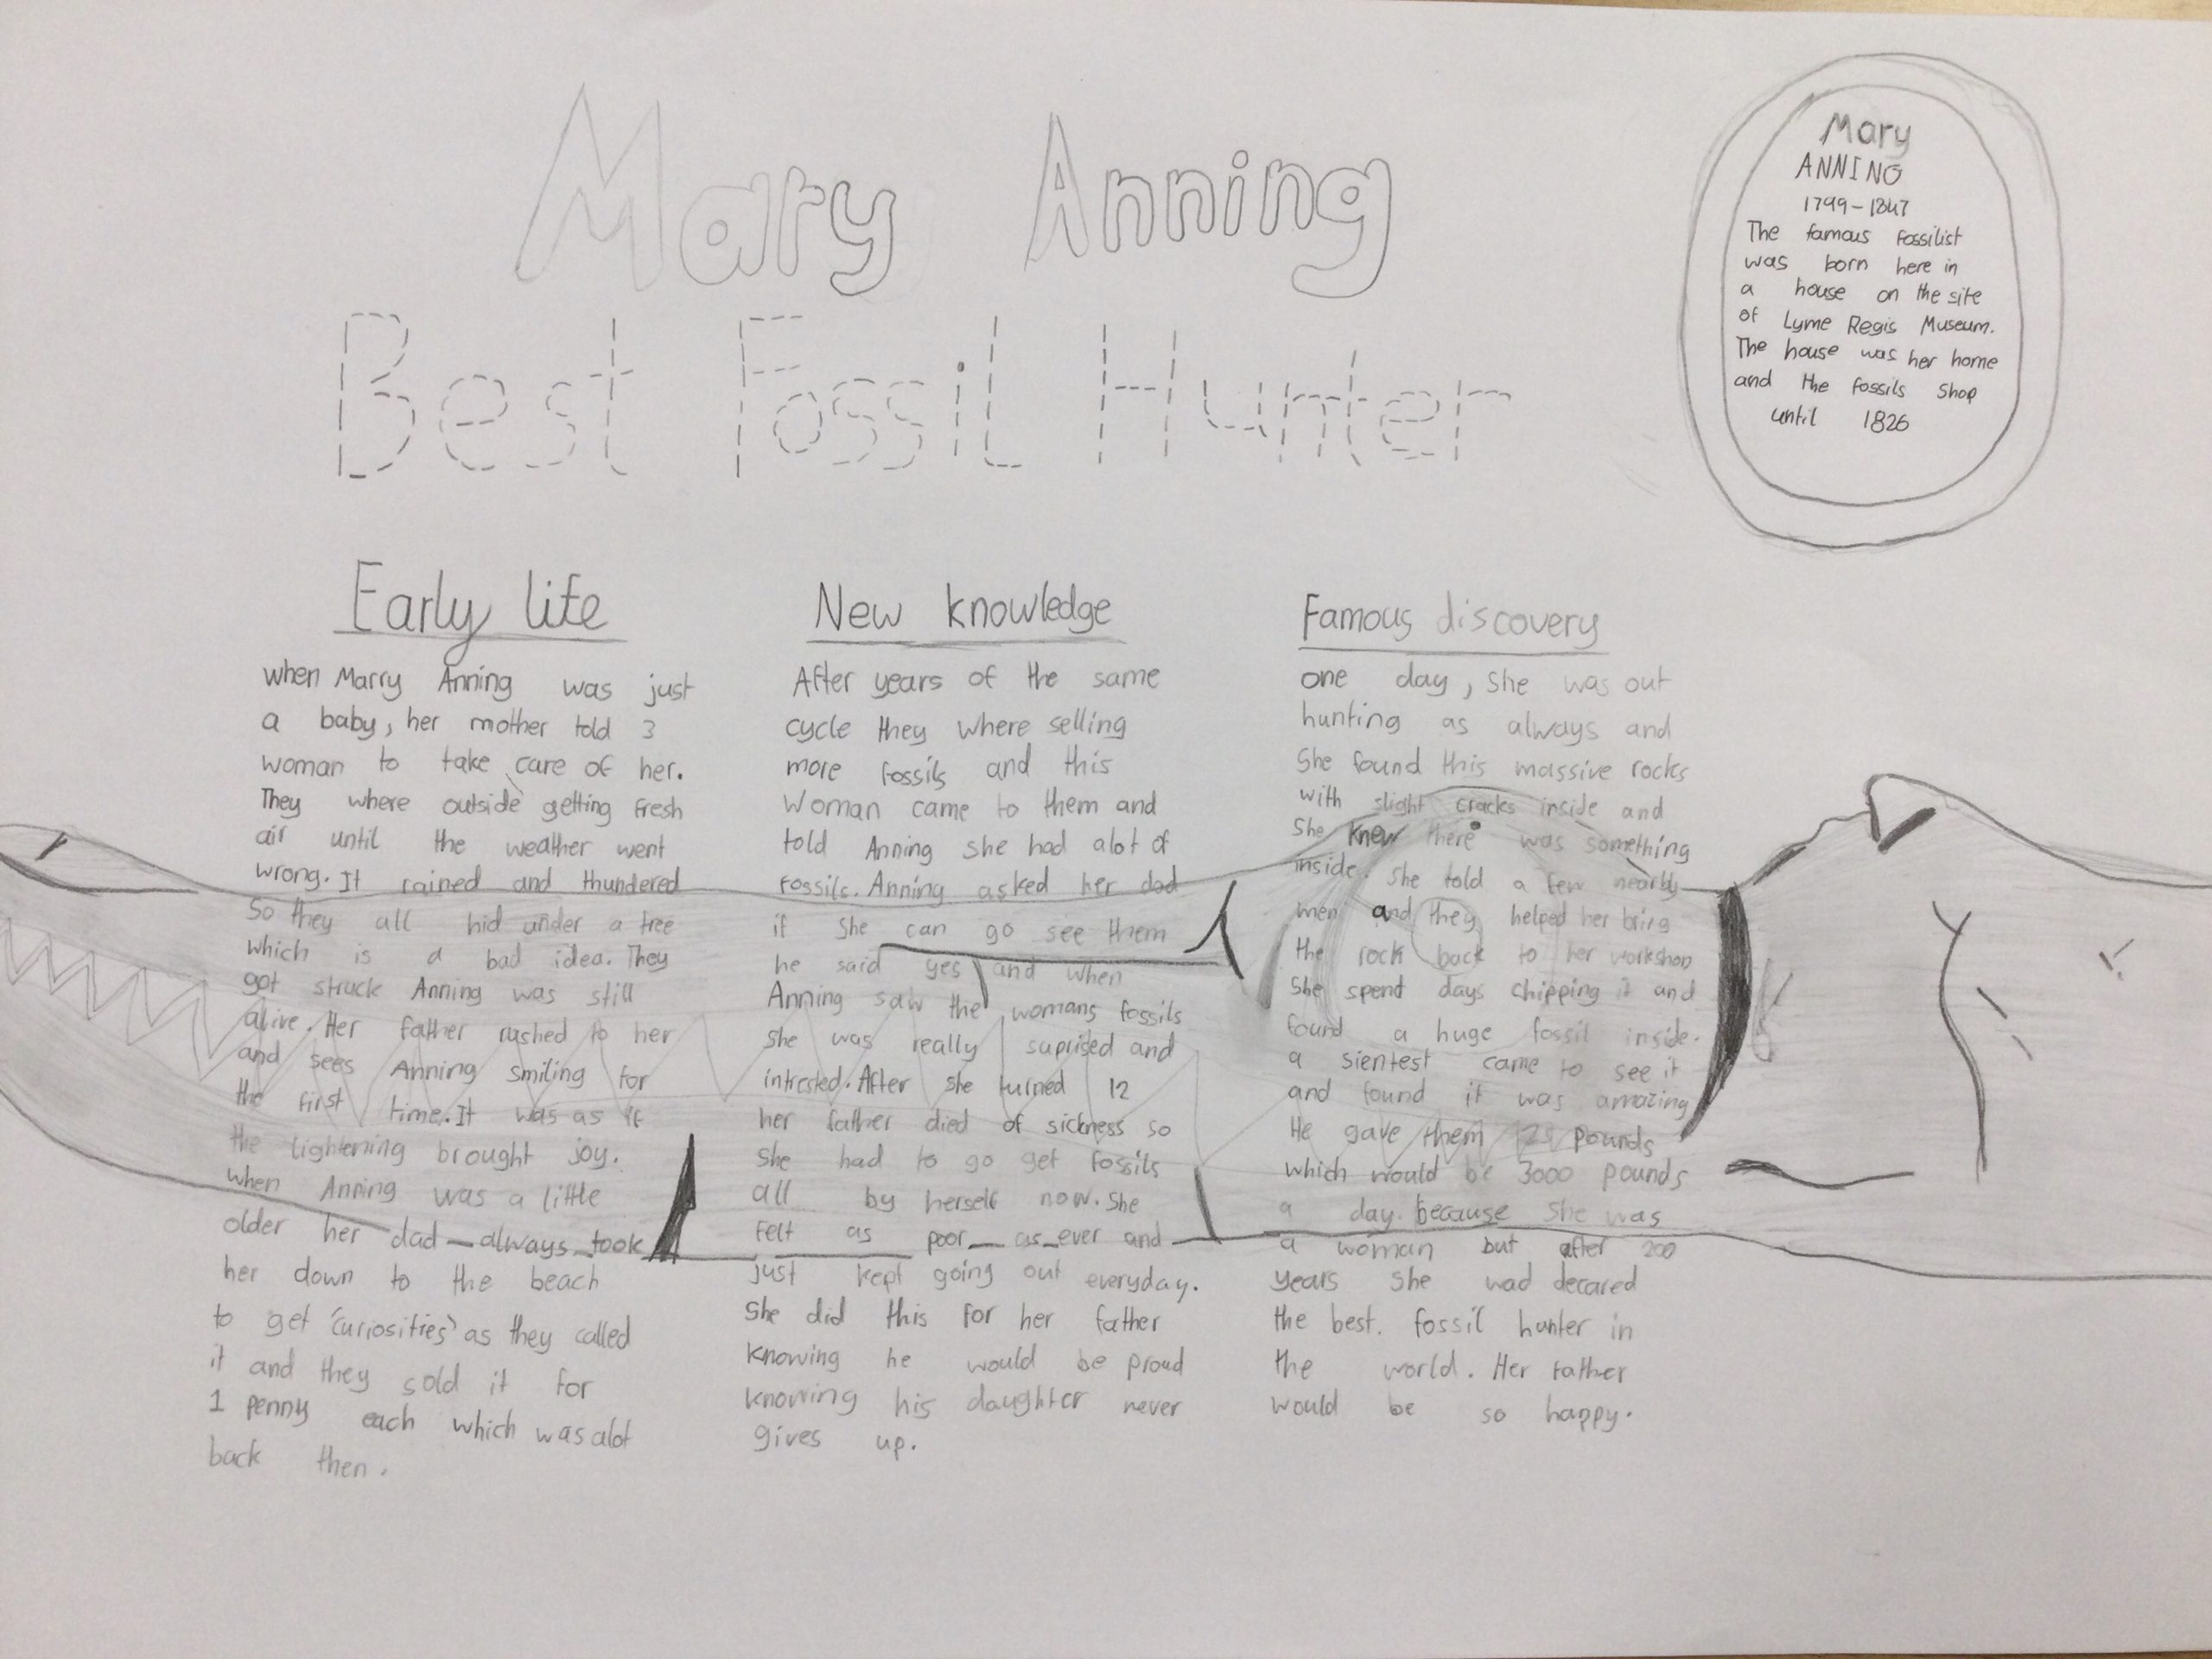 Mary Anning
Best Fossil Hunter
Mary
ANNING
1799-1847
The famous Fossilist
was born here in
a house on the site
of Lyme Regis Museum.
The house was her home
and the fossils shop
until 1826
Early life
when Marry Anning was just
a baby, her mother told 3
woman to take care of her.
They where outside getting fresh
air until the weather went
wrong. It rained and thundered
So they all hid under a tree
which is a bad idea. They
got struck Anning was still
alive. Her father rushed to her
and sees Anning smiling for
the first time. It was as if
the lightening brought joy.
when Anning was a little
older her dad always took
her down to the beach
to get 'curiosities' as they called
it and they sold it for
1 penny each which was alot
back then.
New knowledge
After years of the same
cycle they where selling
more fossils and this
Woman came to them and
told Anning she had alot of
fossils. Anning asked her dad
if she can go see them
he said yes and when
Anning saw the womans fossils
she was really suprised and
intrested. After she turned 12
her father died of sickness so
she had to go get fossils
all by herself now. She
felt as poor as ever and
just kept going out everyday.
She did this for her father
knowing he would be proud
knowing his daughter never
gives up.
Famous discovery
one day, she was out
hunting as always and
She found this massive rocks
with slight cracks inside and
She knew there was something
inside. She told a few nearby
men and they helped her bring
the rock back to her workshop
She spent days chipping it and
found a huge fossil inside.
a sientest came to see it
and found it was amazing
He gave them 125 pounds
which would be 3000 pounds
a day. because she was
a woman but after 200
years she wad decared
the best. fossil hunter in
the world. Her father
would be so happy.